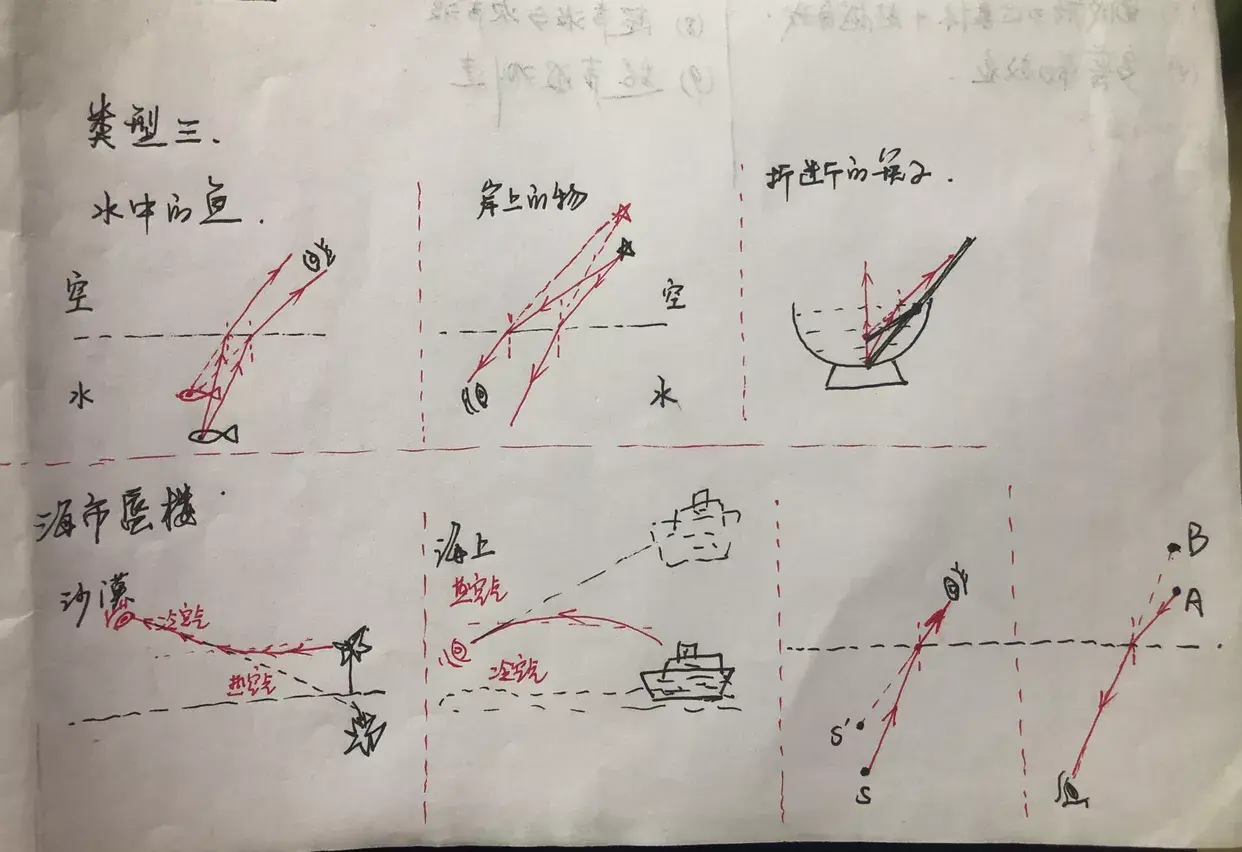 类型三.
水中的鱼.
岸上的物
折进行的筷子.
空
水
空
水
海市蜃楼
沙漠
冷空气
热空气
海上
热空气
冷空气
S'
S
B
A